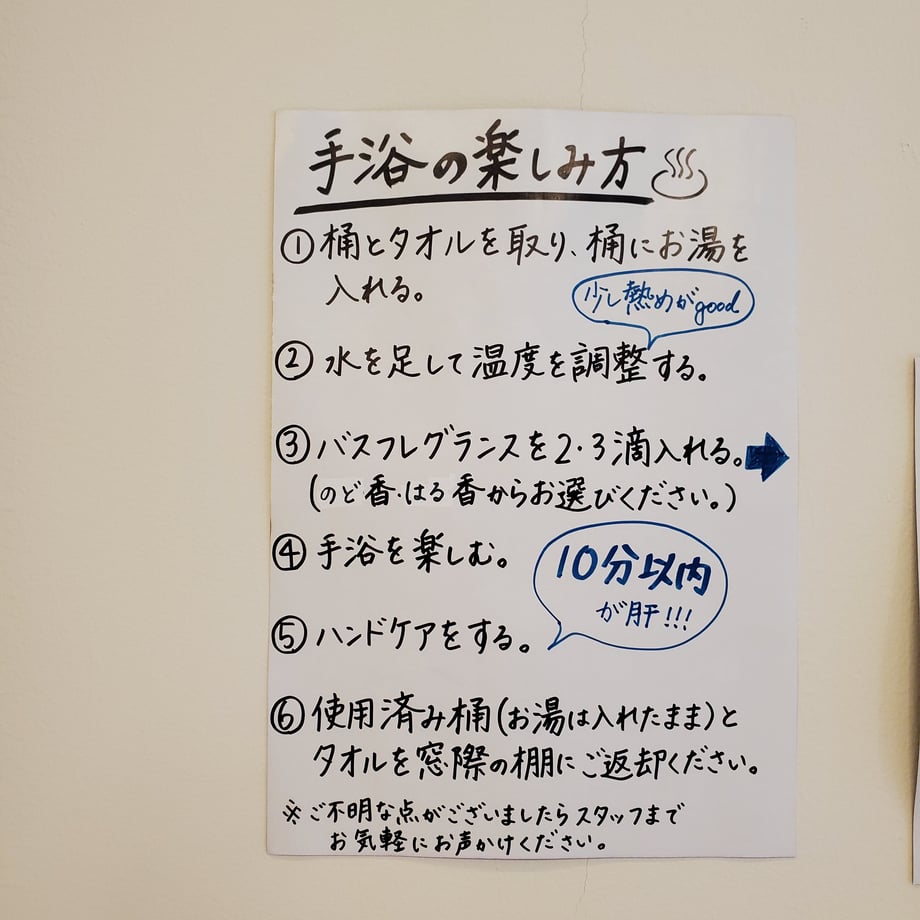 手浴の楽しみ方♨
①桶とタオルを取り、桶にお湯を
入れる。
少し熱めがgood
②水を足して温度を調整する。
③バスフレグランスを2・3滴入れる。
(のど香・はる香からお選びください。)
④手浴を楽しむ。
10分以内
が肝!!!
⑤ハンドケアをする。
⑥使用済み桶(お湯は入れたまま)と
タオルを窓際の棚にご返却ください。
※ご不明な点がございましたらスタッフまで
お気軽にお声かけください。